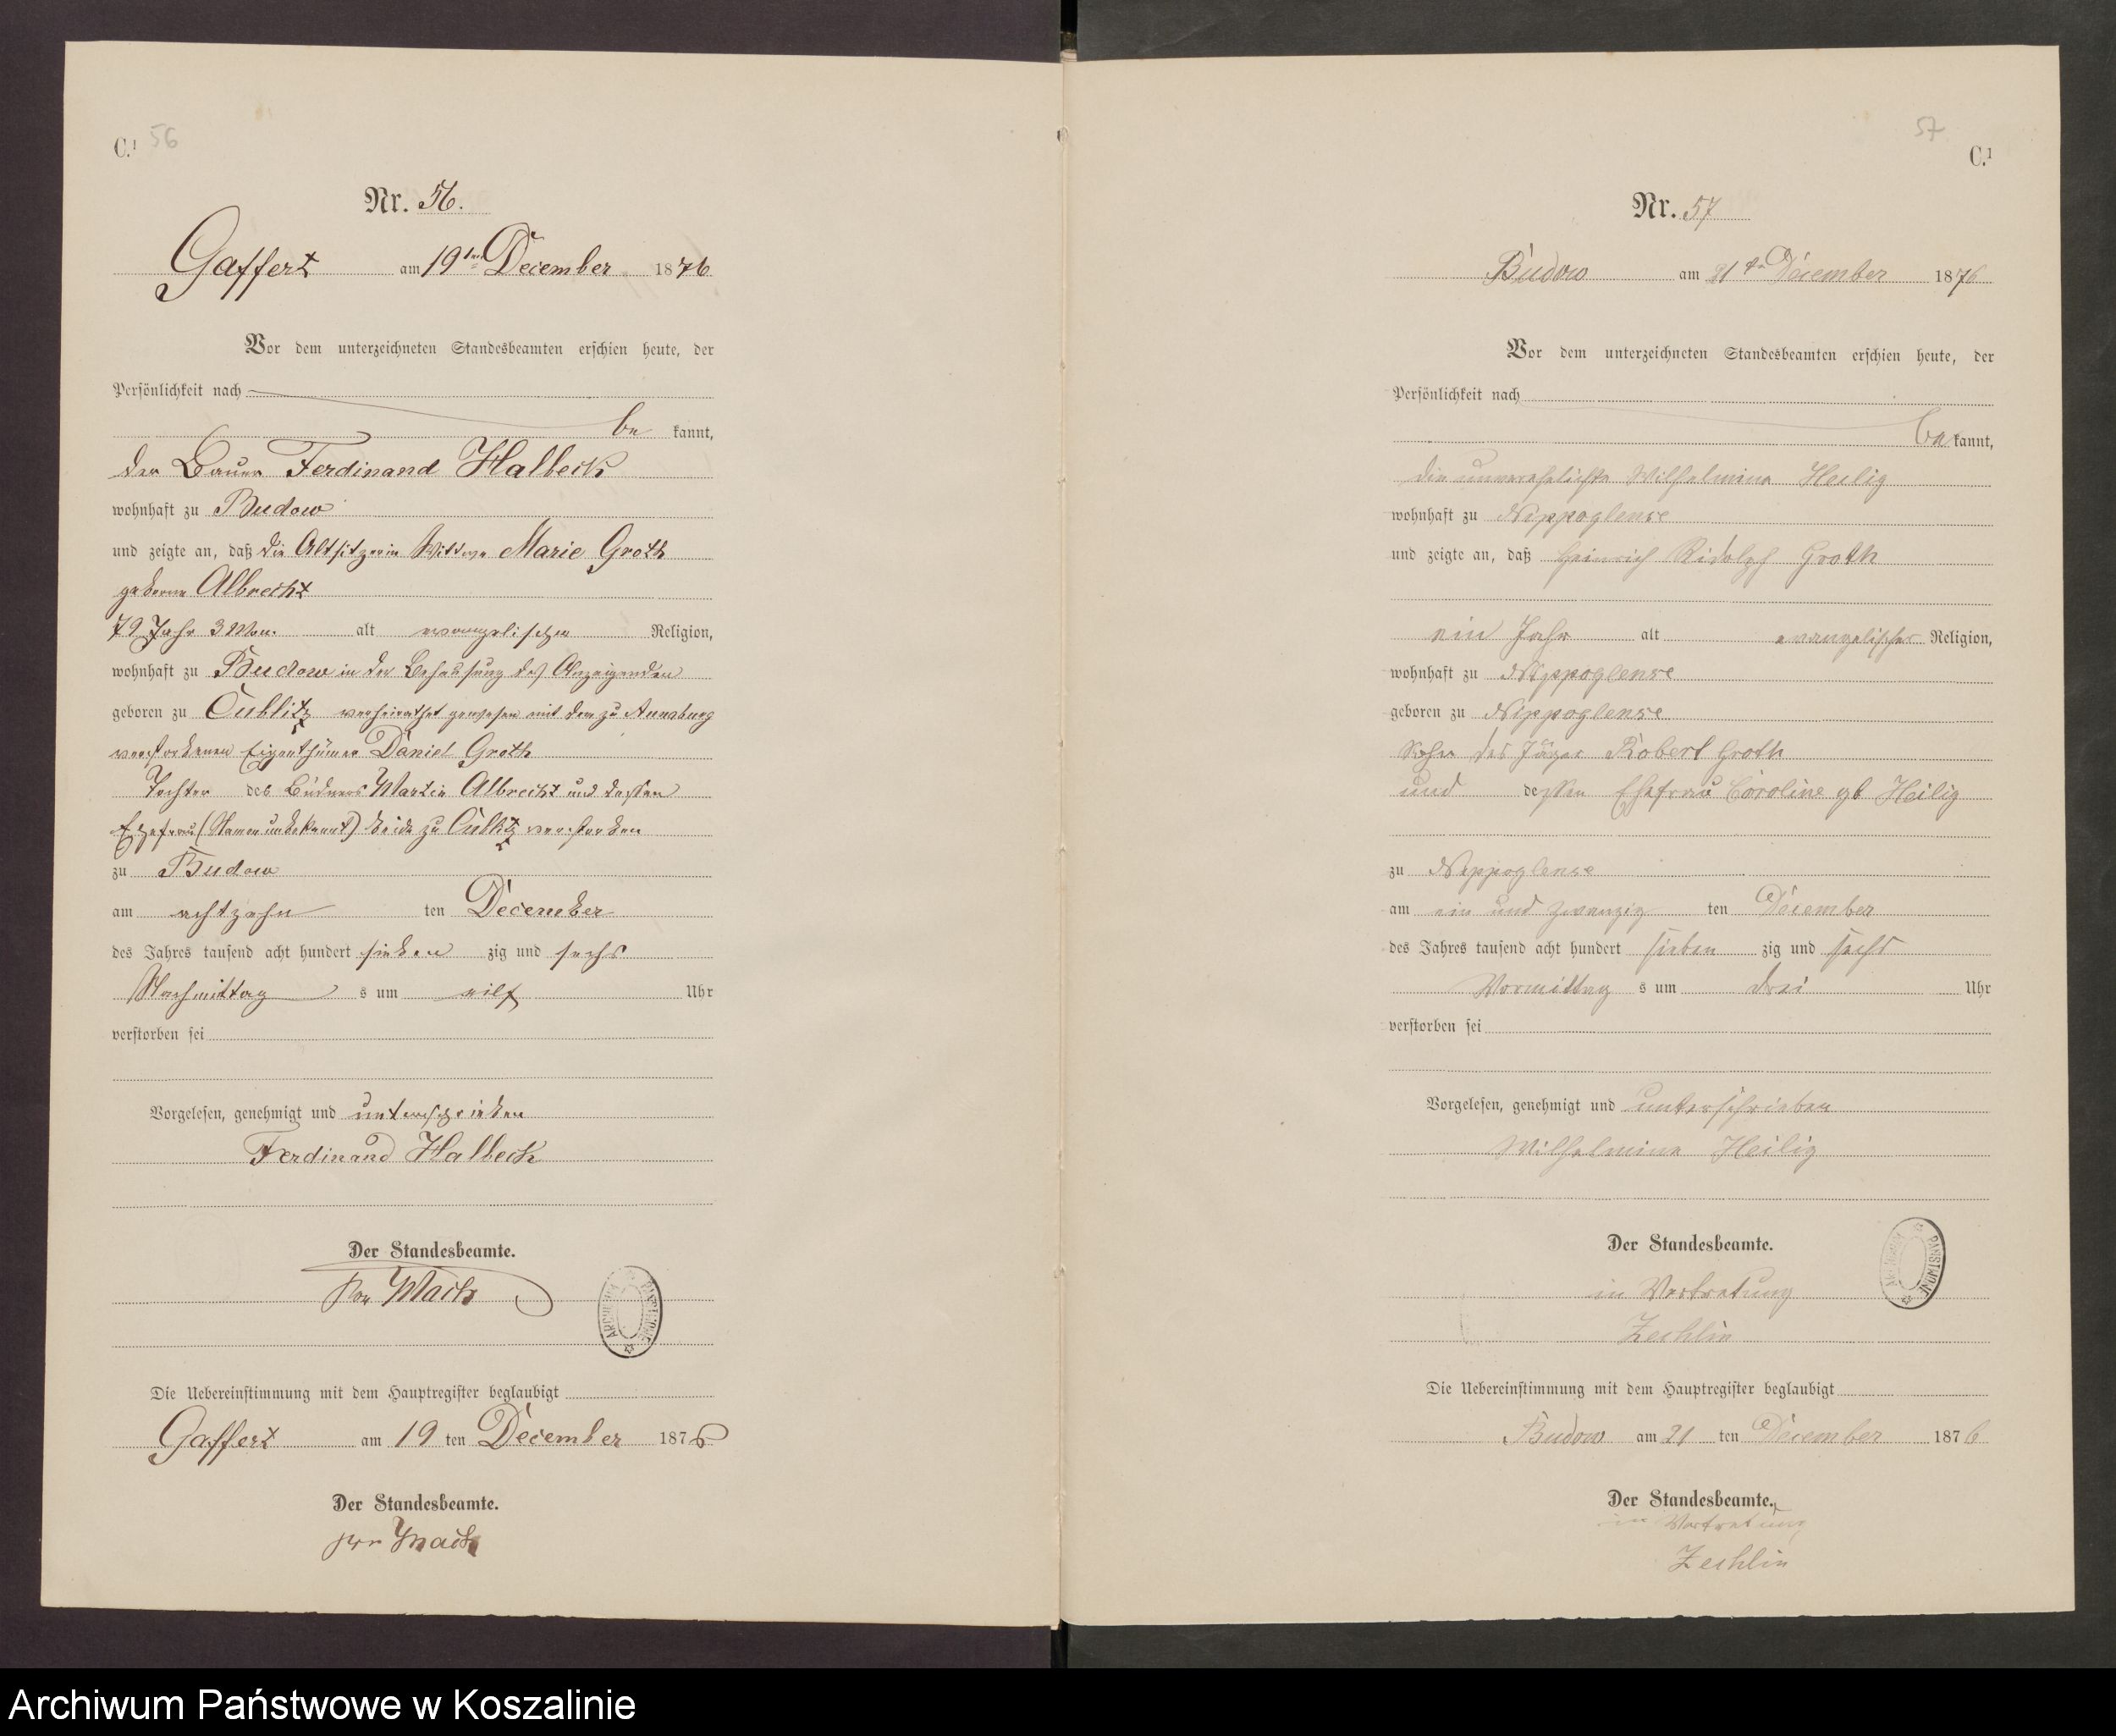 C.¹ 56
Nr. 56.
Gaffert am 19ten December 1876
Vor dem unterzeichneten Standesbeamten erschien heute, der
Persönlichkeit nach
be kannt,
der Bauer Ferdinand Halbeck
wohnhaft zu Budow
und zeigte an, daß die Altsitzerin Wittwe Marie Groth
geborne Albrecht
79 Jahr 3 Mon. alt evangelischen Religion,
wohnhaft zu Budow in der Behausung des Anzeigenden
geboren zu Cublitz verheirathet gewesen mit dem zu Annaburg
verstorbenen Eigenthümer Daniel Groth
Tochter des Büdners Martin Albrecht und dessen
Ehefrau (Namen unbekannt) beide zu Cublitz verstorben
zu Budow
am achtzehn ten December
des Jahres tausend acht hundert sieben zig und sechs
Nachmittag s um eilf Uhr
verstorben sei
Vorgelesen, genehmigt und unterschrieben
Ferdinand Halbeck
Der Standesbeamte.
Mach
ARCHIWUM PAŃSTWOWE
Die Uebereinstimmung mit dem Hauptregister beglaubigt
Gaffert am 19 ten December 1876
Der Standesbeamte.
57
C.¹
Nr. 57
Budow am 21ten December 1876
Vor dem unterzeichneten Standesbeamten erschien heute, der
Persönlichkeit nach
be kannt,
die unverehelichte Wilhelmine Heilig
wohnhaft zu Nippoglense
und zeigte an, daß Heinrich Rudolph Groth
ein Jahr alt evangelischer Religion,
wohnhaft zu Nippoglense
geboren zu Nippoglense
Sohn des Jäger Robert Groth
und dessen Ehefrau Caroline gb Heilig
zu Nippoglense
am ein und zwanzig ten December
des Jahres tausend acht hundert sieben zig und sechs
Vormittag s um drei Uhr
verstorben sei
Vorgelesen, genehmigt und unterschrieben
Wilhelmine Heilig
Der Standesbeamte.
in Vertretung
Zechlin
ARCHIWUM PAŃSTWOWE
Die Uebereinstimmung mit dem Hauptregister beglaubigt
Budow am 21 ten December 1876
Der Standesbeamte.
in Vertretung
Zechlin
Archiwum Państwowe w Koszalinie